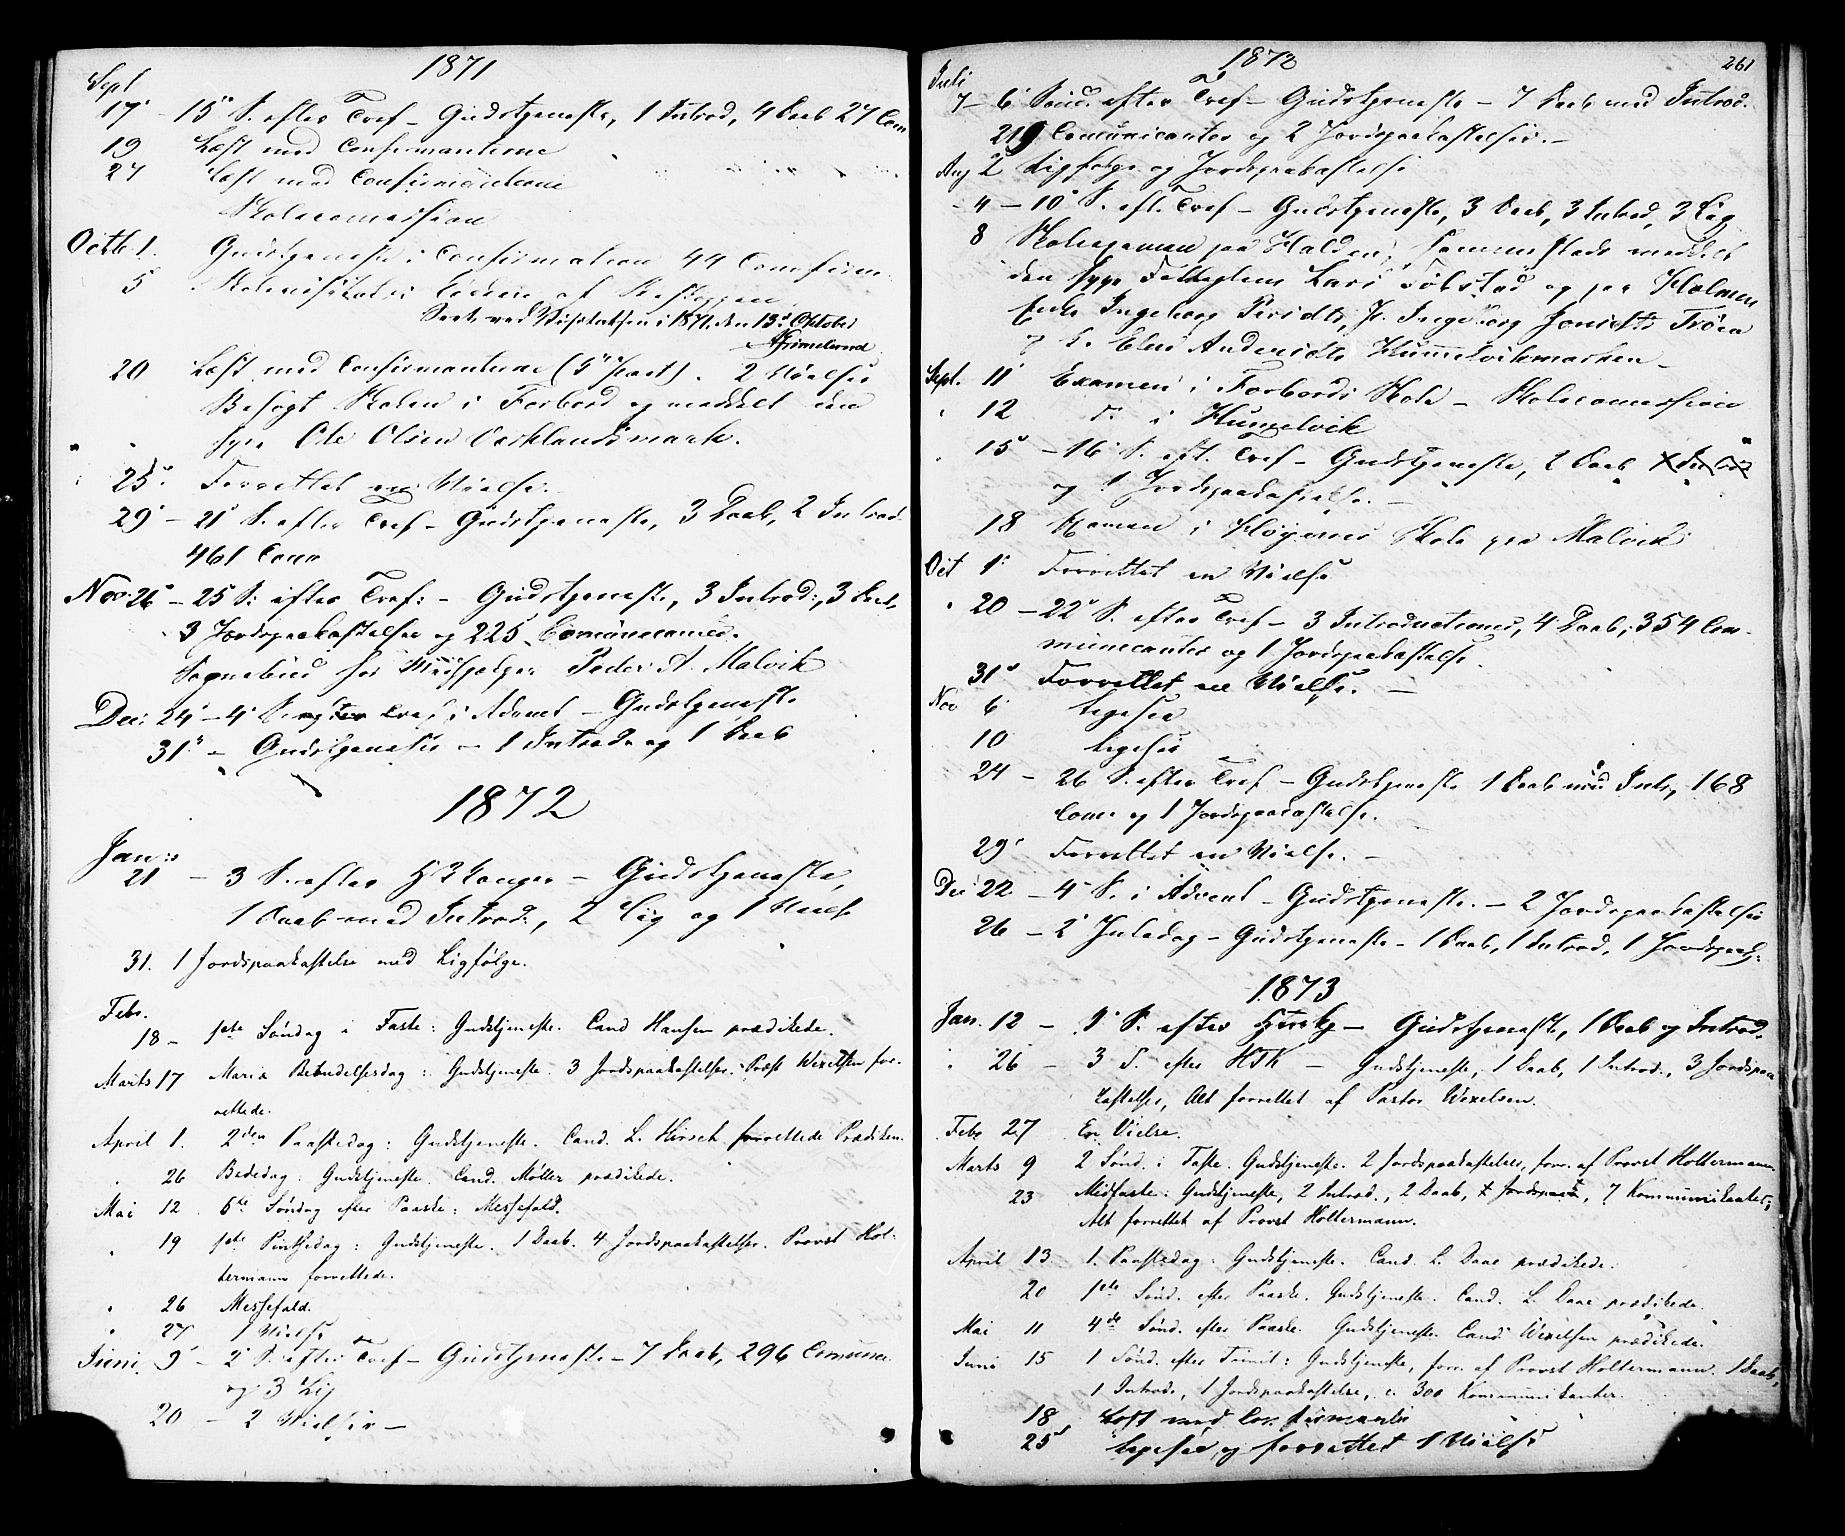 1871
Sept
17 - 15 S. efter Tref - Gudstjeneste, 1 Introd, 4 Daab 27 Com
19 Læst med Confirmanterne
27 Læst med Confirmanterne
Skolecommission
Octb 1. Gudstjeneste i Confirmation 44 Comfirm.
5
Seet ved Visitatsen i 1871, den 13 Oktober
Grimelund
20 Læst med Confirmanterne (5 ). 2 Vielser
Besøgt Skolen i Forbord og meddelt den
syge Ole Olsen
25 Forrettet en Vielse.
29 - 21 S. efter Tref - Gudstjeneste, 3 Daab, 2 Introd.
461 Com
Nov. 26 - 25 S. efter Tref: - Gudstjeneste, 3 Introd:, 3 Daab,
3 Jordspaakastelser og 225 Comunicanter.
Sognebud hos Peder A. Malvik
Dec: 24 - 4 S. i Advent - Gudstjeneste
31 - Gudstjeneste - 1 Introd. og 1 Daab
1872
Jan:
21 - 3 S. efter H 3 Konger - Gudstjeneste,
1 Daab med Introd., 2 Lig og 1 Vielse
31. 1 Jordspaakastelse med Ligfølge.
Febr.
18 - 1ste Søndag i Faste: Gudstjeneste. Cand Hansen prædikede.
Marts 17 Mariæ Bebudelsesdag: Gudstjeneste. 3 Jordspaakastelser. Præst Wexelsen for-
rettede.
April 1. 2den Paaskedag: Gudstjeneste. Cand. L. Hirsch forrettede Prædiken.
26 Bededag: Gudstjeneste. Cand. Møller prædikede.
Mai 12. 6te Søndag efter Paaske: Messefald.
19 1ste Pintsedag: Gudstjeneste. 1 Daab. 4 Jordspaakastelser. Provst Hol-
termann forrettede.
26 Messefald.
27 1 Vielse
Juni 9 - 2 S. efter Tref - Gudstjeneste - 7 Daab, 296 Comun.
og 3 Lig
20 - 2 Vielser -
1872
261
Juli
7 - 6 Sønd. efter Tref - Gudstjeneste - 7 Daab med Introd.
219 Comunicanter og 2 Jordspaakastelser. -
Aug 2 Ligfølge og Jordspaakastelse
- 4 - 10 S. eft. Tref - Gudstjeneste, 3 Daab, 3 Introd, 3 Lig
8 Skoleexamen paa Halden; sammesteds meddelt
den syge Lars og paa Holmen
Enke Ingeborg Jr. Ingeborg Jonsdtr
Andersdtr Hummelvikmarken -
Sept. 11 Examen i Forbords Skole - Skolecommission
12 do i Hummelvik
15 - 16 S. eft. Tref - Gudstjeneste, 2 Daab
og 1 Jordspaakastelse. -
18 Examen i Skole paa Malvik
Oct 1. Forrettet en Vielse
20 - 22 S. efter Tref - 3 Introductioner, 4 Daab, 354 Com-
municanter og 1 Jordspaakastelse.
31 Forrettet en Vielse. -
Nov 6 Ligesaa
10 Ligesaa
24 - 26 S. efter Tref - Gudstjeneste 1 Daab med Intr, 168
Com. og 1 Jordspaakastelse.
29 Forrettet en Vielse. -
Dec 22 - 4 S. i Advent - Gudstjeneste. - 2 Jordspaakastelser
26 - 2 Juledag - Gudstjeneste - 1 Daab, 1 Introd, 1 Jordspaak:
1873
Jan. 12 - 1 S. efter H - Gudstjeneste, 1 Daab og Introd.
26 - 3 S. efter HTK - Gudstjeneste, 1 Daab, 1 Introd., 3 Jordspaa
kastelser, Alt forrettet af Pastor Wexelsen.
Febr 27 En Vielse.
Marts 9 2 Sønd. i Faste. Gudstjeneste. 2 Jordspaakastelser, forr. af Provst Holtermann
23 Midfaste: Gudstjeneste, 2 Introd., 2 Daab, 7 Kommunikanter;
Alt forrettet af Provst Holtermann.
April 13. 1. Paaskedag: Gudstjeneste. Cand. L. Daae prædikede.
20 1ste Sønd. efter Paaske. Gudstjeneste. Cand. L. Daae prædikede.
Mai 11 4de Sønd. efter Paaske. Gudstjeneste. Cand. Wexelsen prædikede.
Juni 15 1 Sønd. efter Trinit: Gudstjeneste, forr. af Provst Holtermann. 1 Daab,
1 Introd., 1 Jordspaakastelse, c. 300 Kommunikanter.
18 Læst med Confirmanter
25 Ligesaa og forrettet 1 Vielse